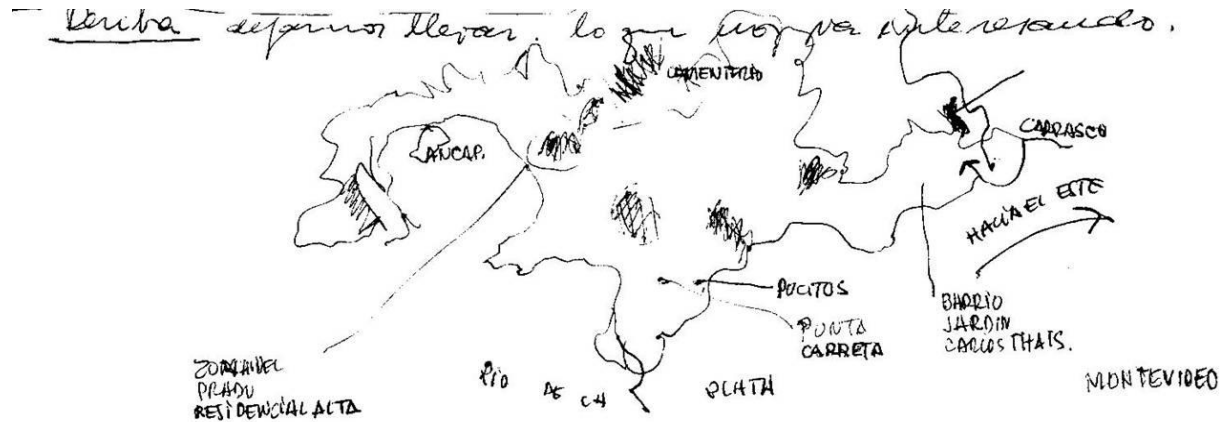 Deriva dejarnos llevar. lo que nos va interesando.
CEMENTERIO
ANCAP.
CARRASCO
HACIA EL ESTE
POCITOS
PUNTA
CARRETA
BARRIO
JARDIN
CARLOS THAIS.
PRADO
RESIDENCIAL ALTA
RIO DE LA PLATA
MONTEVIDEO